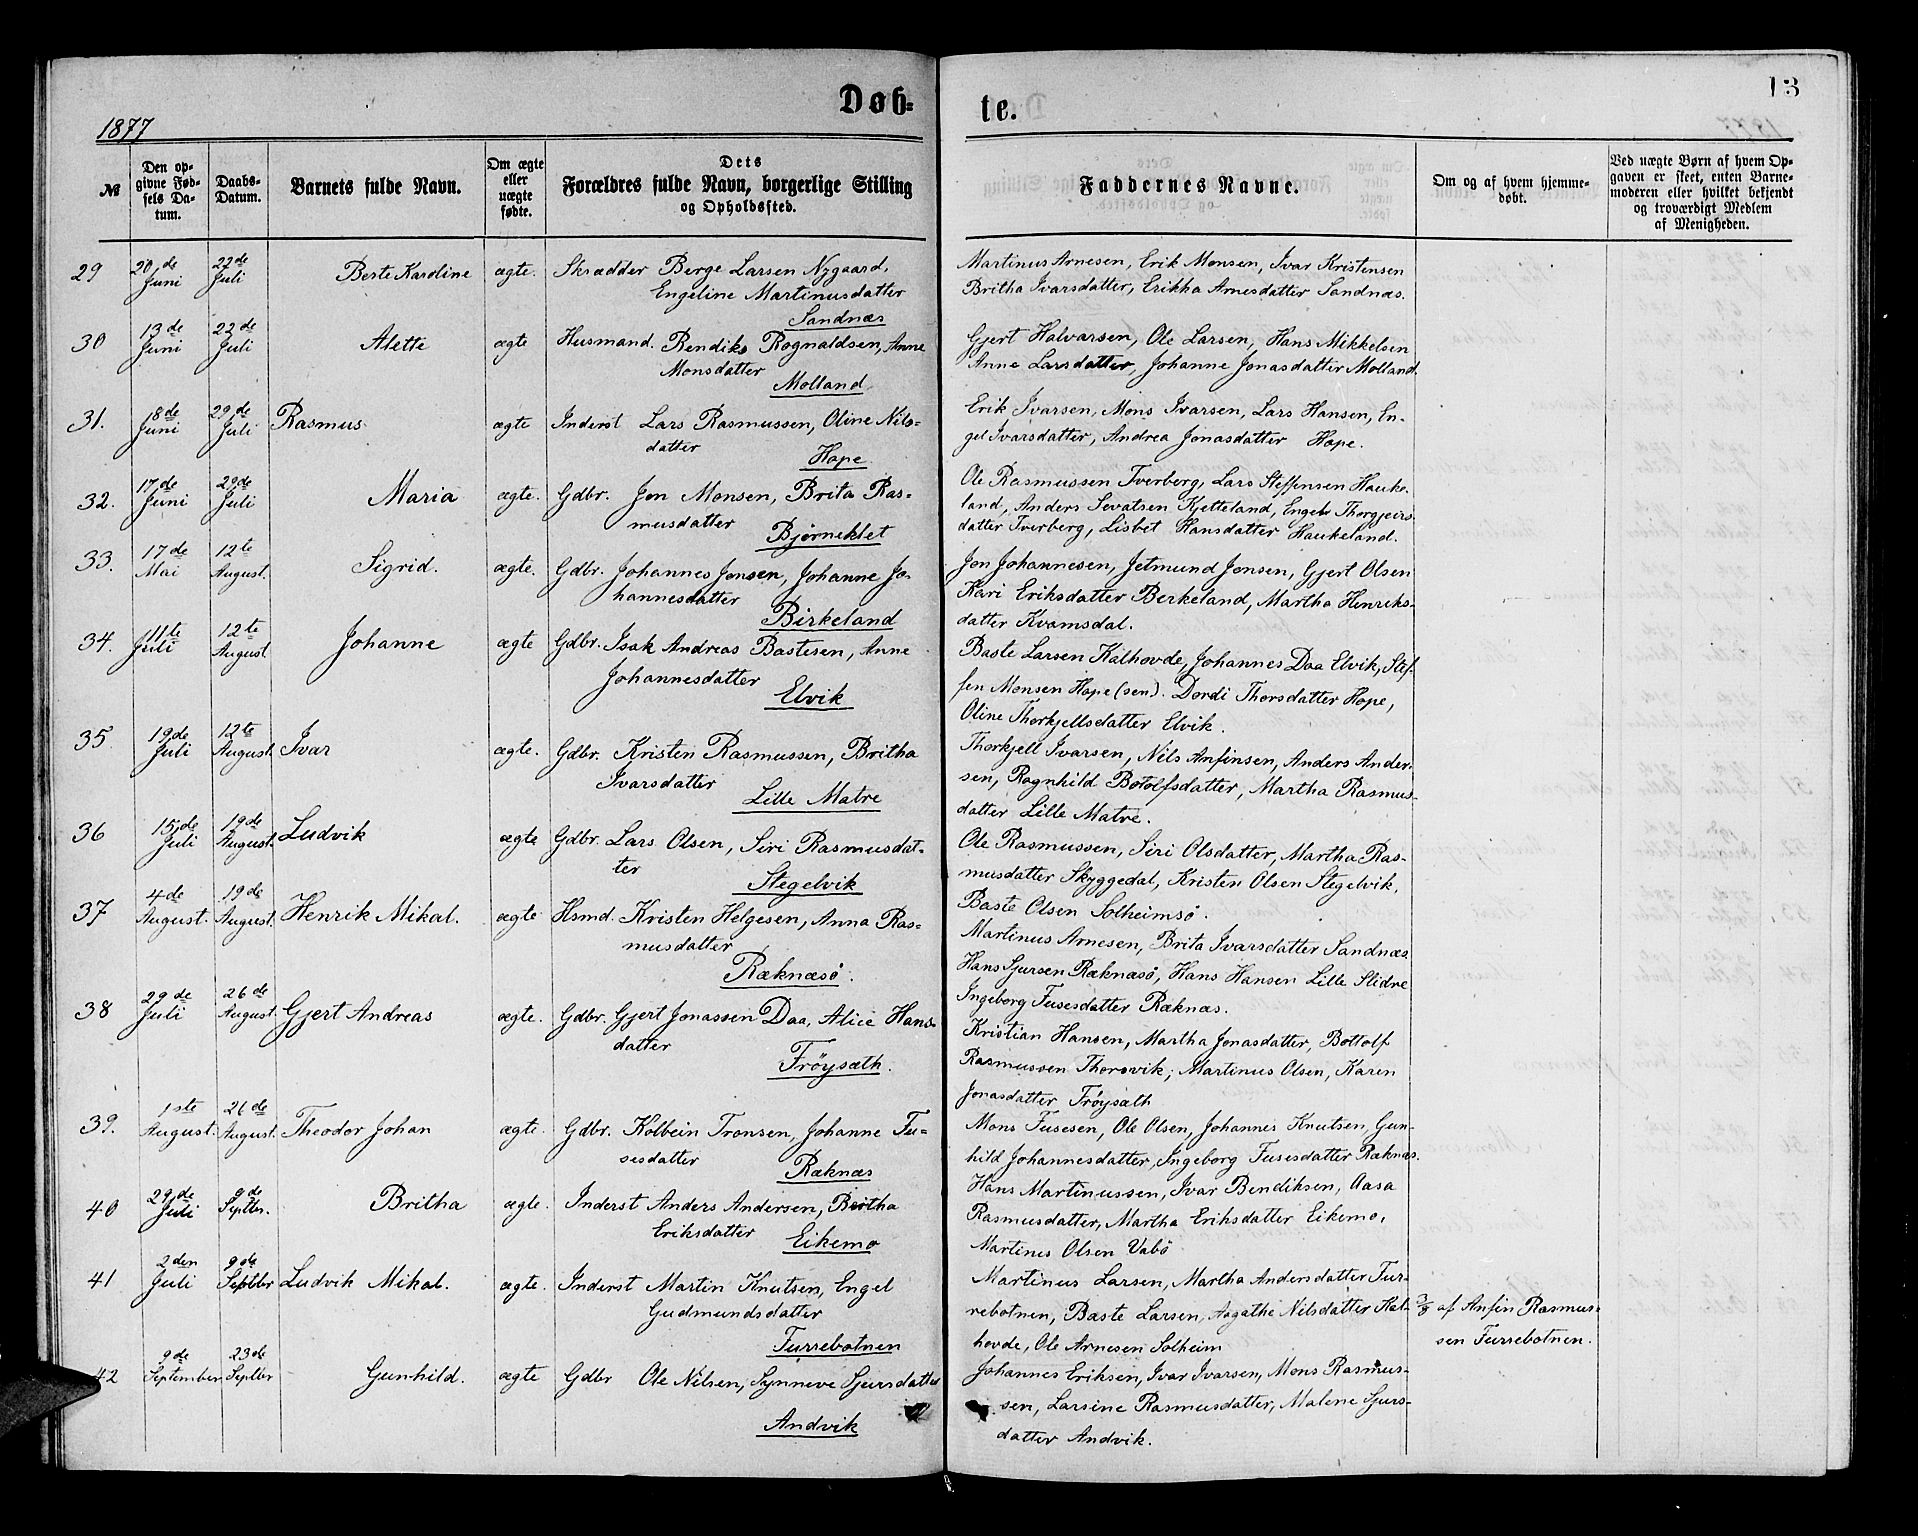 Døb-
te.
13
1877
№
Den op-
givne Fød-
sels Da-
tum.
Daabs-
Datum.
Barnets fulde Navn.
Om ægte
eller
uægte
fødte.
Dets
Forældres fulde Navn, borgerlige Stilling
og Opholdssted.
Faddernes Navne.
Om og af hvem hjemme-
døbt.
Ved uægte Børn af hvem Op-
gaven er skeet, enten Barne-
moderen eller hvilket bekjendt
og troværdigt Medlem
af Menigheden.
29 20de Juni 22de Juli Berte Karoline ægte. Skrædder Berge Larsen Nygaard,
Engeline Martinusdatter
Sandnæs
Martinus Arnesen, Erik Monsen, Ivar Kristensen
Britha Ivarsdatter, Erikka Arnesdatter Sandnæs.
30 13de Juni 22de Juli Alette ægte Husmand. Bendiks Rognaldsen, Anne
Monsdatter
Molland
Gjert Halvarsen, Ole Larsen, Hans Mikkelsen
Anne Larsdatter, Johanne Jonasdatter Molland.
31. 18de Juni 29de Juli Rasmus ægte Inderst Lars Rasmussen, Oline Nils-
datter
Hope
Erik Ivarsen, Mons Ivarsen, Lars Hansen, En-
gel Ivarsdatter, Andrea Jonasdatter Hope.
32. 17de Juni 29de Juli Maria ægte. Gdbr. Jon Monsen, Brita Ras-
musdatter
Bjørneklet
Ole Rasmussen Tverberg, Lars Steffensen Hauke-
land, Anders Sevatsen Kjetteland, Engel Thorgjeirs-
datter Tverberg, Lisbet Hansdatter Haukeland.
33. 17de Mai 12te August. Sigrid. ægte. Gdbr. Johannes Jonsen, Johanne Jo-
hannesdatter
Birkeland
Jon Johannesen, Jetmund Jonsen, Gjert Olsen
Kari Eriksdatter Berkeland, Martha Henriks-
datter Kvamsdal.
34. 11te Juli 12te August Johanne ægte Gdbr. Isak Andreas Bastesen, Anne
Johannesdatter
Elvik
Baste Larsen Kalhovde, Johannes Daa Elvik, Stef-
fen Monsen Hope (sen). Dordi Thorsdatter Hope,
Oline Thorkjellsdatter Elvik.
35 19de Juli 12te August Ivar ægte. Gdbr. Kristen Rasmussen, Britha
Ivarsdatter
Lille Matre
Thorkjell Ivarsen, Nils Anfinsen, Anders Ander-
sen, Ragnhild Botolfsdatter, Martha Rasmus-
datter Lille Matre.
36 15de Juli 19de August. Ludvik ægte Gdbr. Lars Olsen, Siri Rasmusdat-
ter
Stegelvik
Ole Rasmussen, Siri Olsdatter, Martha Ras-
musdatter Skyggedal, Kristen Olsen Stegelvik,
Baste Olsen Solheimsø.
37 4de August. 19de August. Henrik Mikal. ægte Hsmd. Kristen Helgesen, Anna Ras-
musdatter
Ræknæsö.
Martinus Arnesen, Brita Ivarsdatter Sandnæs
Hans Sjursen Ræknæsö, Hans Hansen Lille Slidre
Ingeborg Fusesdatter Ræknæs.
38 29de Juli 26de August. Gjert Andreas ægte. Gdbr. Gjert Jonassen Daa, Alice Hans-
datter
Fröysæth.
Kristian Hansen, Martha Jonasdatter, Bottolf
Rasmussen Thorsvik, Martinus Olsen, Karen
Jonasdatter Fröysæth
39. 1ste August. 26de August. Theodor Johan ægte. Gdbr. Kolbein Tronsen, Johanne Fu-
sesdatter
Ræknæs
Mons Fusesen, Ole Olsen, Johannes Knutsen, Gun-
hild Johannesdatter, Ingeborg Fusesdatter Ræknæs.
40 29de Juli 9de Septbr. Britha ægte. Inderst Anders Andersen, Britha
Eriksdatter
Eikemo
Hans Martinussen, Ivar Bendiksen, Aasa
Rasmusdatter, Martha Eriksdatter Eikemo,
Martinus Olsen Vabö
41 2den Juli 9de Septbr Ludvik Mikal. ægte. Inderst Martin Knutsen, Engel
Gudmundsdatter
Furrebotnen
Martinus Larsen, Martha Andersdatter Fur-
rebotnen, Baste Larsen, Aagathe Nilsdatter Kal-
hovde, Ole Arnesen Solheim
3/8 af Anfin Rasmus-
sen Furrebotnen.
42 9de September 23de Septbr Gunhild. ægte Gdbr Ole Nilsen, Synneve Sjursdatter
Andvik
Johannes Eriksen, Ivar Ivarsen, Mons Rasmus-
sen, Larsine Rasmusdatter, Malene Sjurs-
datter Andvik.